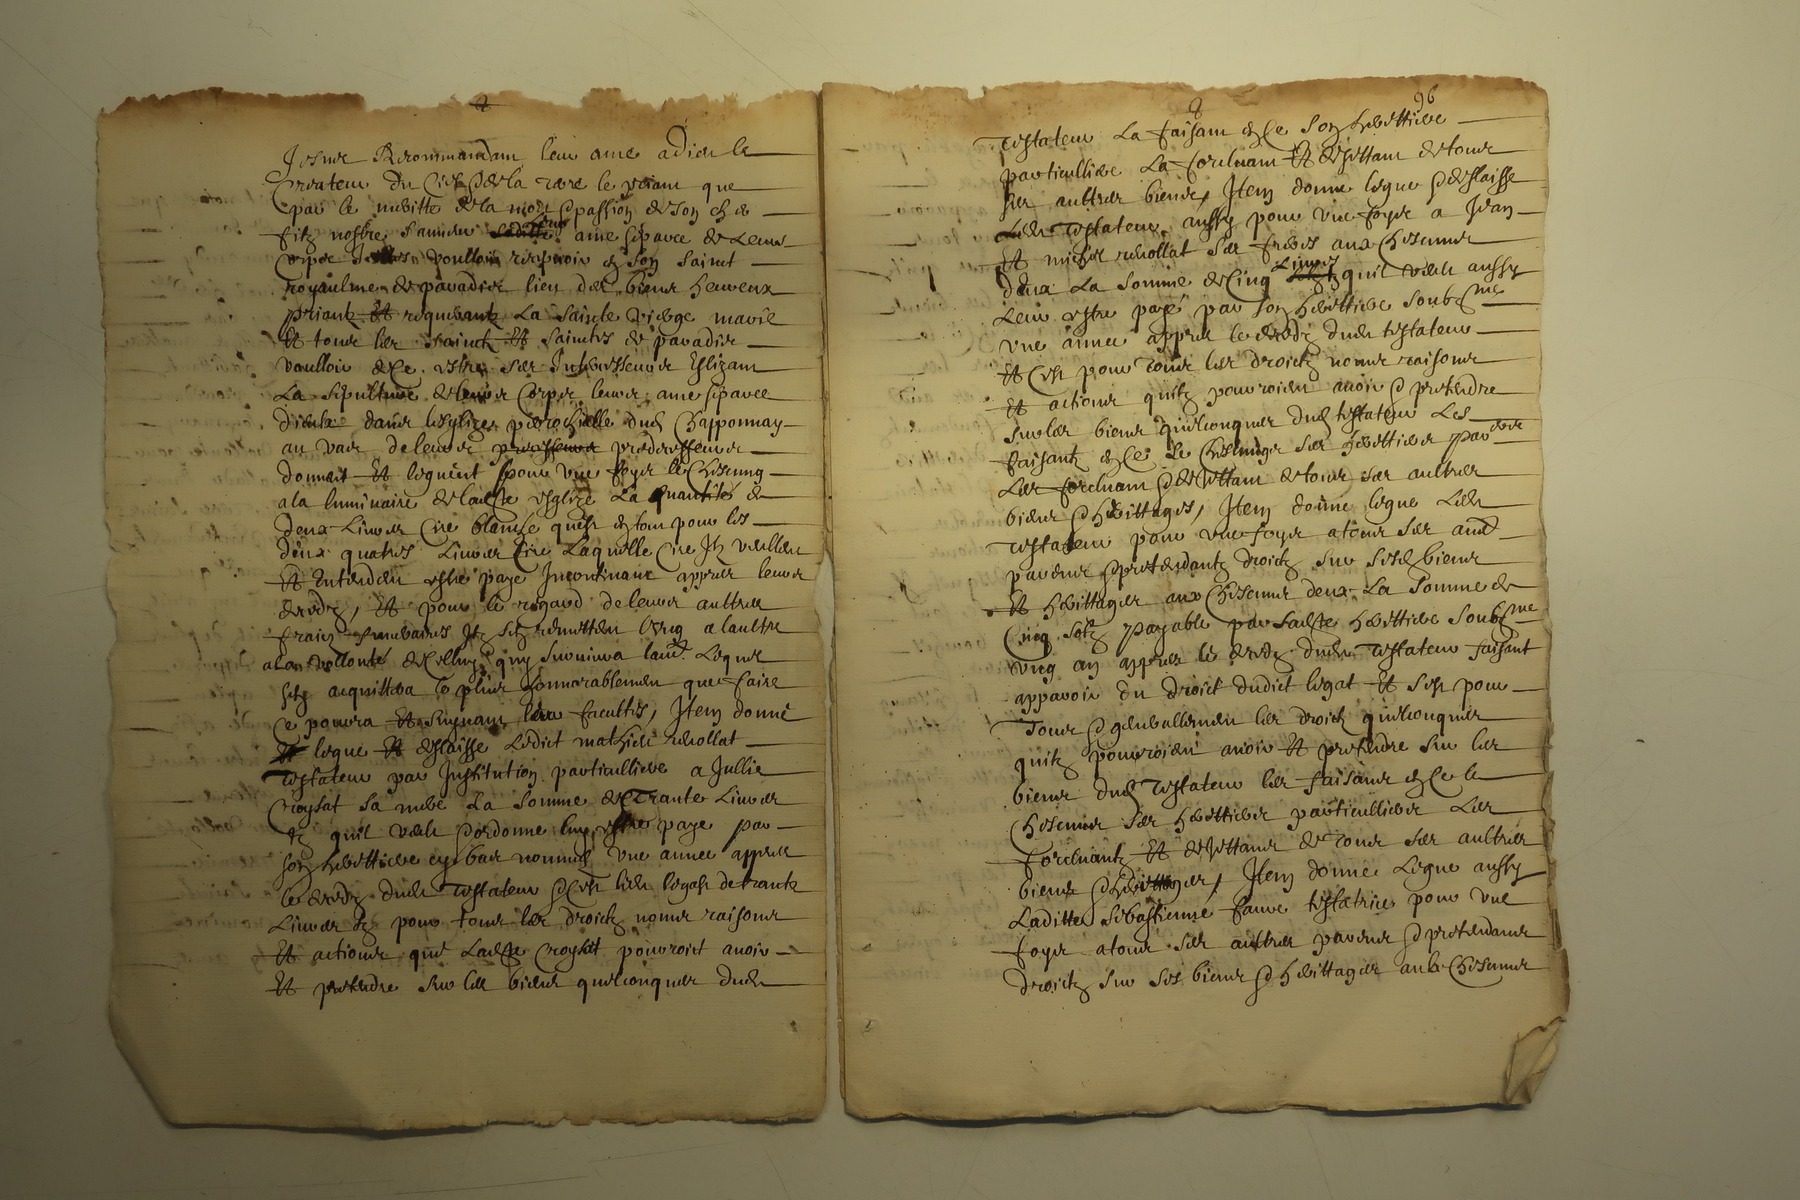 Recommandant leur ame a dieu le
Createur du Ciel & de la terre le priant que
par le meritte de la mort & passion de son ch er
filz nostre sauveur leur ame separee de leurs
corps voulloir recepvoir en son sainct
royaulme de paradis lieu des biens heureux
priant Et requerant La Saincte vierge marie
Et tous les sainctz Et Sainctes de paradis
voulloir estre ses Intercesseurs Eslizant
La sepulture de leurs Corps leurs ame separee
d'iceulx dans lesglize parrochialle dud Chapponnay
au vas de leurs predecesseurs
donnent Et leguent pour une foys
a la luminaire de ladte esglize La quantité de
deux Livres Cire blanche quest en tout pour les
deux quatres Livres Cire Laquelle Cire Ilz veullent
Et Entendent estre paye Incontinant apprès leurs
decedz, Et pour le regard de leurs aultres
fraiz funeraires Ilz sen remettent l'ung a laultre
a la vollonté de Celluy quy survivra
acquittera le plus honnorablement que faire
ce pourra Et suyvant leurs facultés, Item donne
Et legue Et deslaisse Ledict mathieu revollat
Testateur par Institution particulliere a Jullie
Croysat sa mere La Somme de Trante Livres
tz quil veult & ordonne luy estre paye par
son herettiere cy bas nommee une annee apprès
le decedz dud Testateur & c'est led legat de trante
Livres tz pour tous les droictz noms raisons
Et actions que Ladte Croysat pourroict avoir
Et pretendre sur les biens quelconques dud
96
Testateur La faisant en Ce son herettiere
particulliere La forcluant Et dejettant de tous
ses aultres biens, Item donne legue & deslaisse
Led Testateur aussy pour une foys a Jean
Et michel revollat ses freres aux Chescungs
deux La Somme de Cinq Livres quil veult aussy
Leur estre payé par son herettiere soubz me
une annee apprès le decedz dud testateur
Et C'est pour tous les droictz noms raisons
Et actions quilz pourroient avoir & pretendre
sur les biens quelconques dud testateur Les
faisant en Ce ses herettiers par ers
Les forcluant & dejettant de tous ses aultres
biens & herittages, Item donne legue Led
Testateur pour une foys a tous ses aud
parens & pretendantz droictz sur sesd biens
Et herittages aux Chescungs deux La Somme de
Cinq solz payable par sadte herettiere soubz me
ung an apprès le decedz dud Testateur faisant
apparoir du droict dudict legat Et c'est pour
Tous & generallement les droictz quelconques
quilz pourroient avoir Et pretendre sur les
biens dud Testateur les faisant en Ce le
Chescungs ses herettiers particulliers Les
forcluantz Et dejettant de tous ses aultres
biens & herittages, Item donne Legue aussy
Laditte Sebastienne faure testatrice pour une
foys a tous ses aultres parens & pretendans
droictz sur ses biens & herittages aux Chescungs